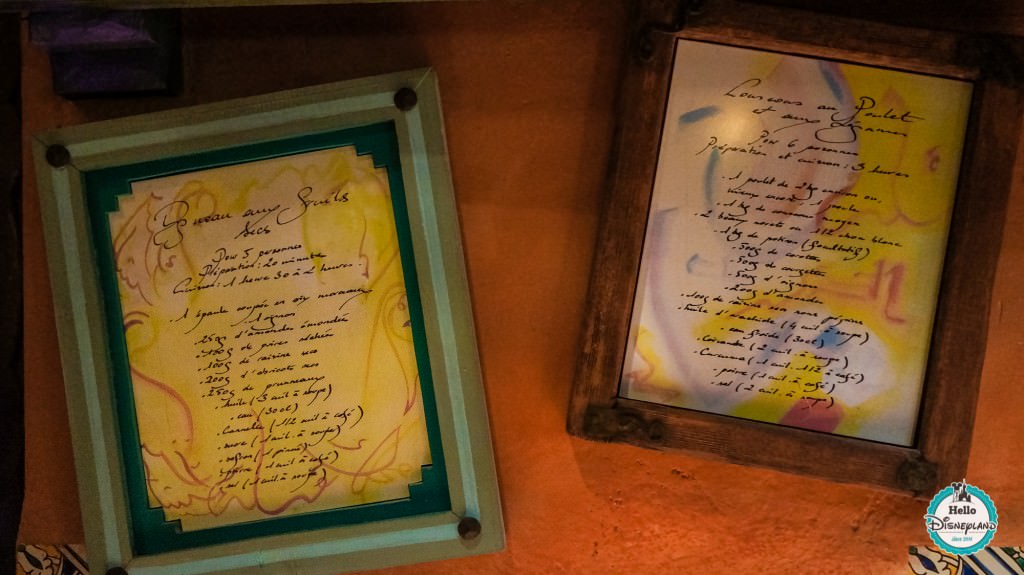 Agneau aux Fruits
Secs
Pour 5 personnes
Préparation : 20 minutes
Cuisson : 1 heure 30 à 2 heures.
. 1 épaule coupée en six morceaux
. 1 oignon
. 250g d'amandes émondées
. 150g de poires
. 100g de raisins secs
. 200g d'abricots secs
. 250g de pruneaux
. huile (3 cuil à soupe)
. eau (30cl)
. Cannelle (1/2 cuil à café)
. sucre (1 cuil. à soupe)
. safran (1 pincée)
. poivre (1 cuil à café)
. sel (1 cuil. à soupe)
Couscous au Poulet
et aux Légumes
Pour 6 personnes
Préparation et cuisson : 3 heures
. 1 poulet de 2kg environ ou,
. 1kg de couscous moyen
. 1kg de potiron
. 500g de carottes
. 500g de courgettes
. 500g d'oignons
. 200g d'amandes
. 100g de raisins secs
. huile d' (4 cuil à soupe)
. eau froide (30cl)
. Coriandre (2 cuil. à soupe)
. Curcuma (1 cuil. 1/2 à café)
. poivre (1 cuil. à café)
. sel (2 cuil. à soupe)
Hello
Disneyland